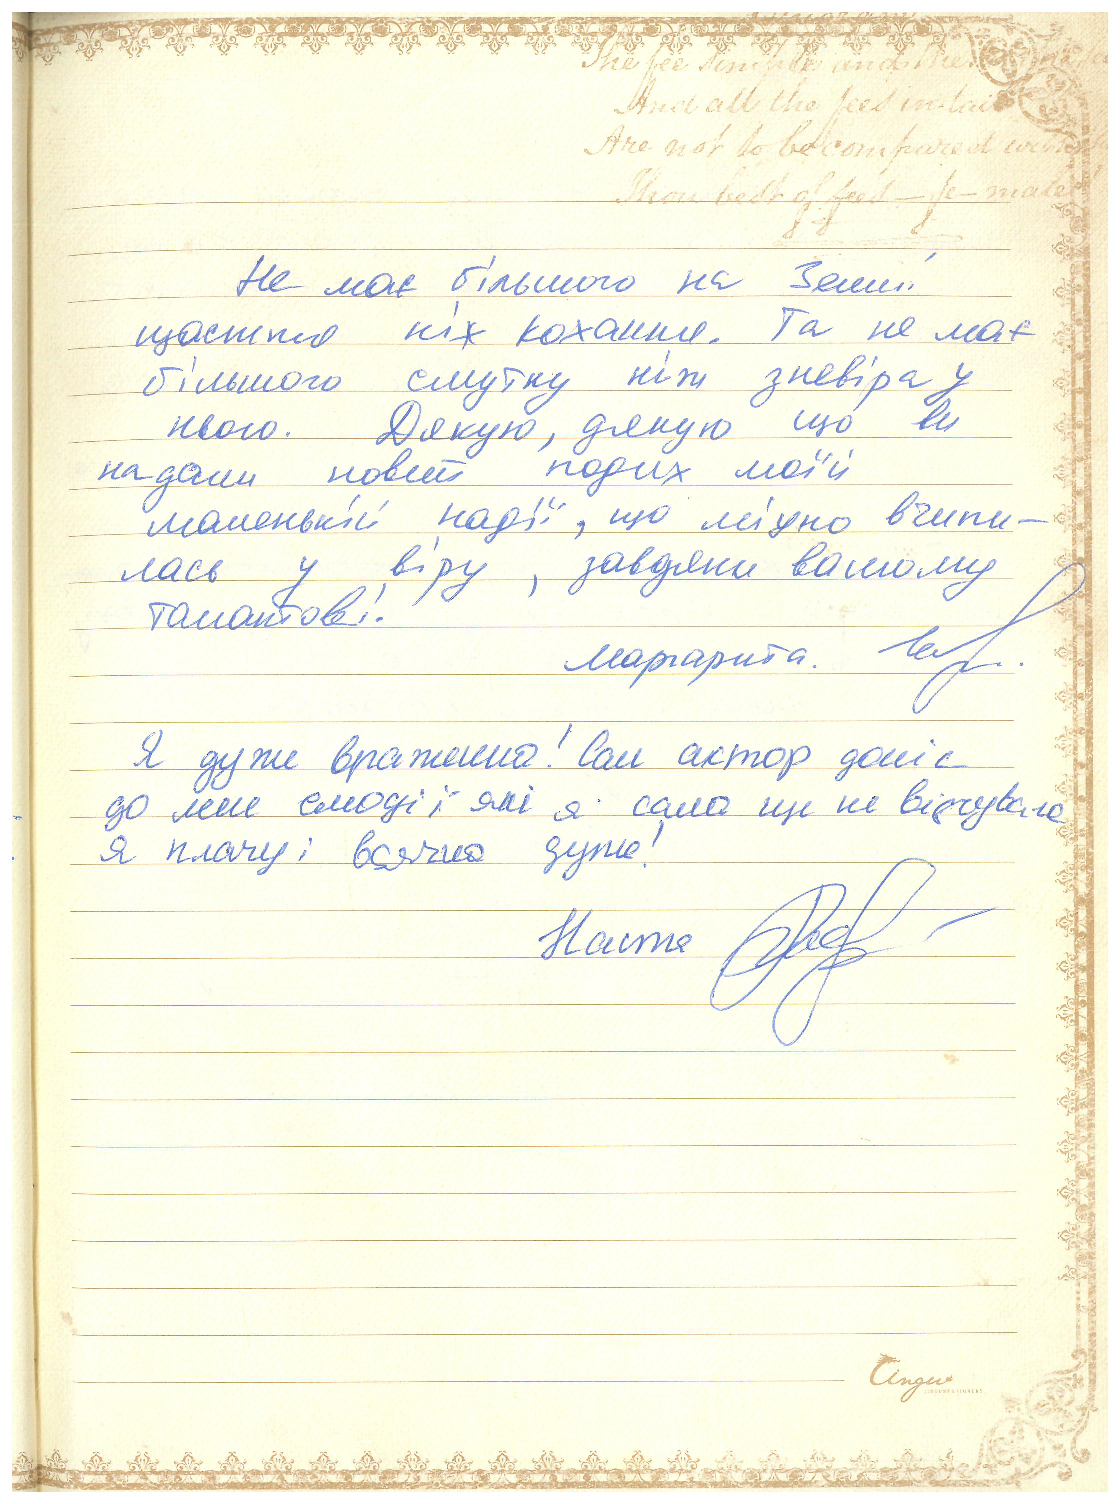 The fee simple and the
And all the fees in tail
Are not to be compared with
Thou best of fees — fe-male!
Не має більшого на Землі
щасття ніх кохання. Та не має
більшого смутку ніж зневіра у
нього. Дякую, дякую що ви
надали новий подих моїй
маленькій надії, що міцно вчепи-
лась у віру, завдяки вашому
талантові.
Маргарита.
Я дуже вражена! Сам актор доніс
до мене емоції які я сама ще не відчувала
Я плачу і вдячна дуже!
Настя